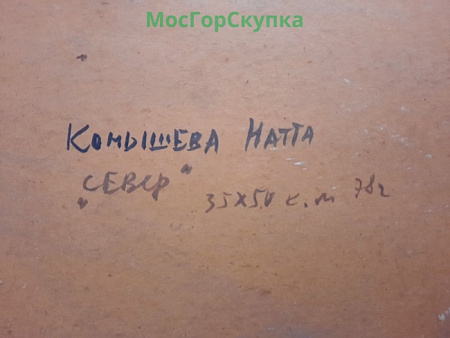 МосГорСкупка
Комышева Натта
"Север"
35х50 к.м 78г